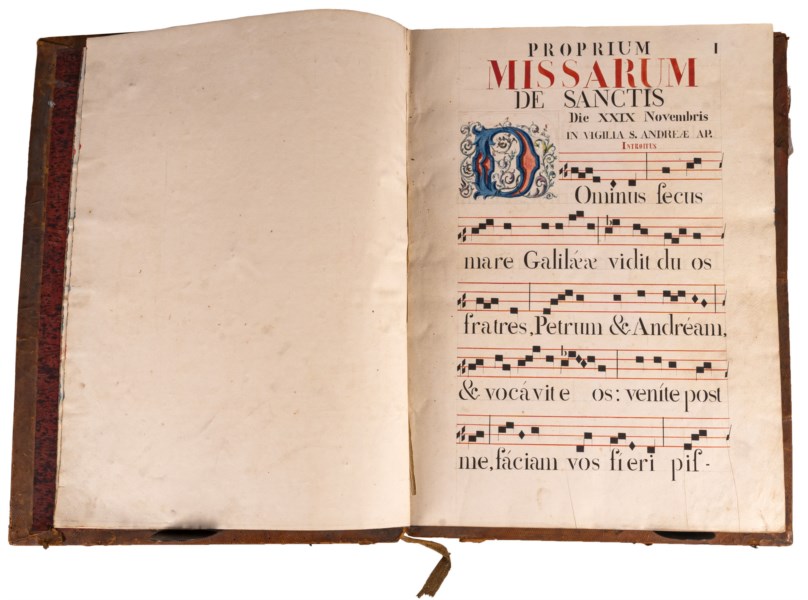 PROPRIUM I
MISSARUM
DE SANCTIS
Die XXIX Novembris
IN VIGILIA S. ANDREÆ AP.
INTROITUS
DOminus ſecus
mare Galilǽæ vidit du os
fratres, Petrum & Andréam,
& vocávit e os: veníte post
me, fáciam vos fieri piſ-